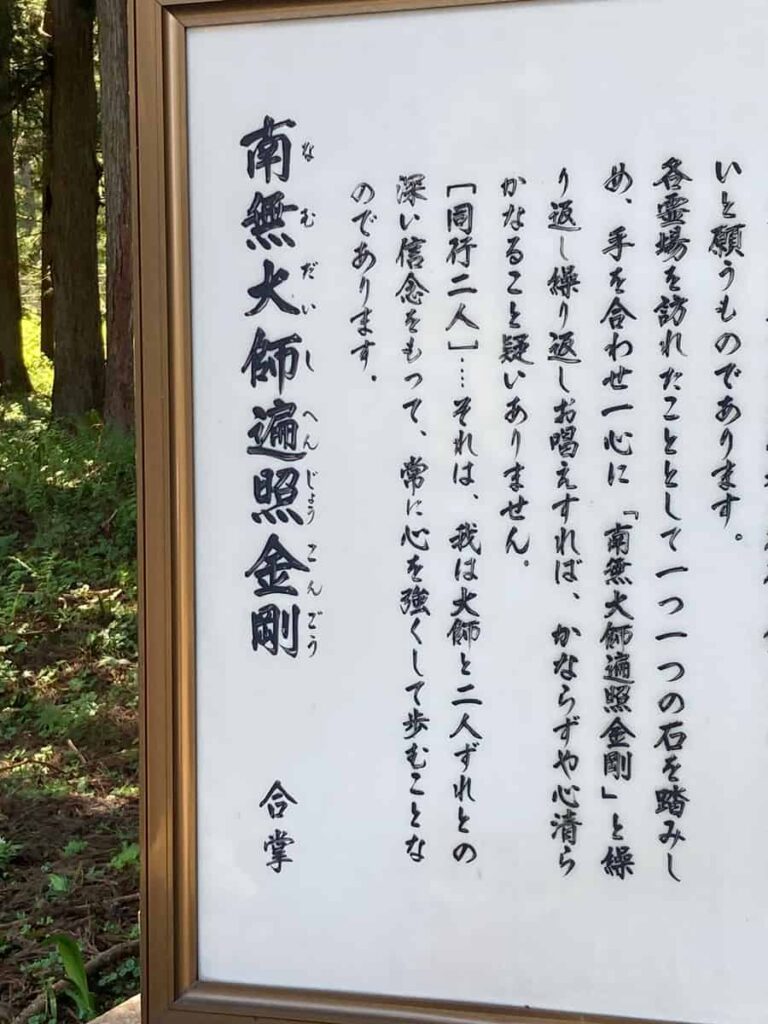 いと願うものであります。
各霊場を訪れたこととして一つ一つの石を踏みし
め、手を合わせ一心に「南無大師遍照金剛」と繰
り返し繰り返しお唱えすれば、かならずや心清ら
かなること疑いありません。
［同行二人］…それは、我は大師と二人ずれとの
深い信念をもって、常に心を強くして歩むことな
のであります。
南無大師遍照金剛
なむだいしへんじょうこんごう
合掌